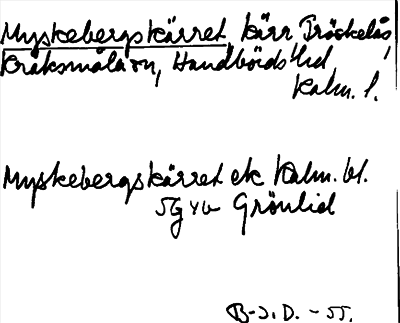 Myskebergskärret, kärr Träskelås,
Kråksmåla sn, Handbörds hd
Kalm. l.
Myskebergskärret ek Kalm. bl.
5g vb Grönlid
B-s. D. -55.